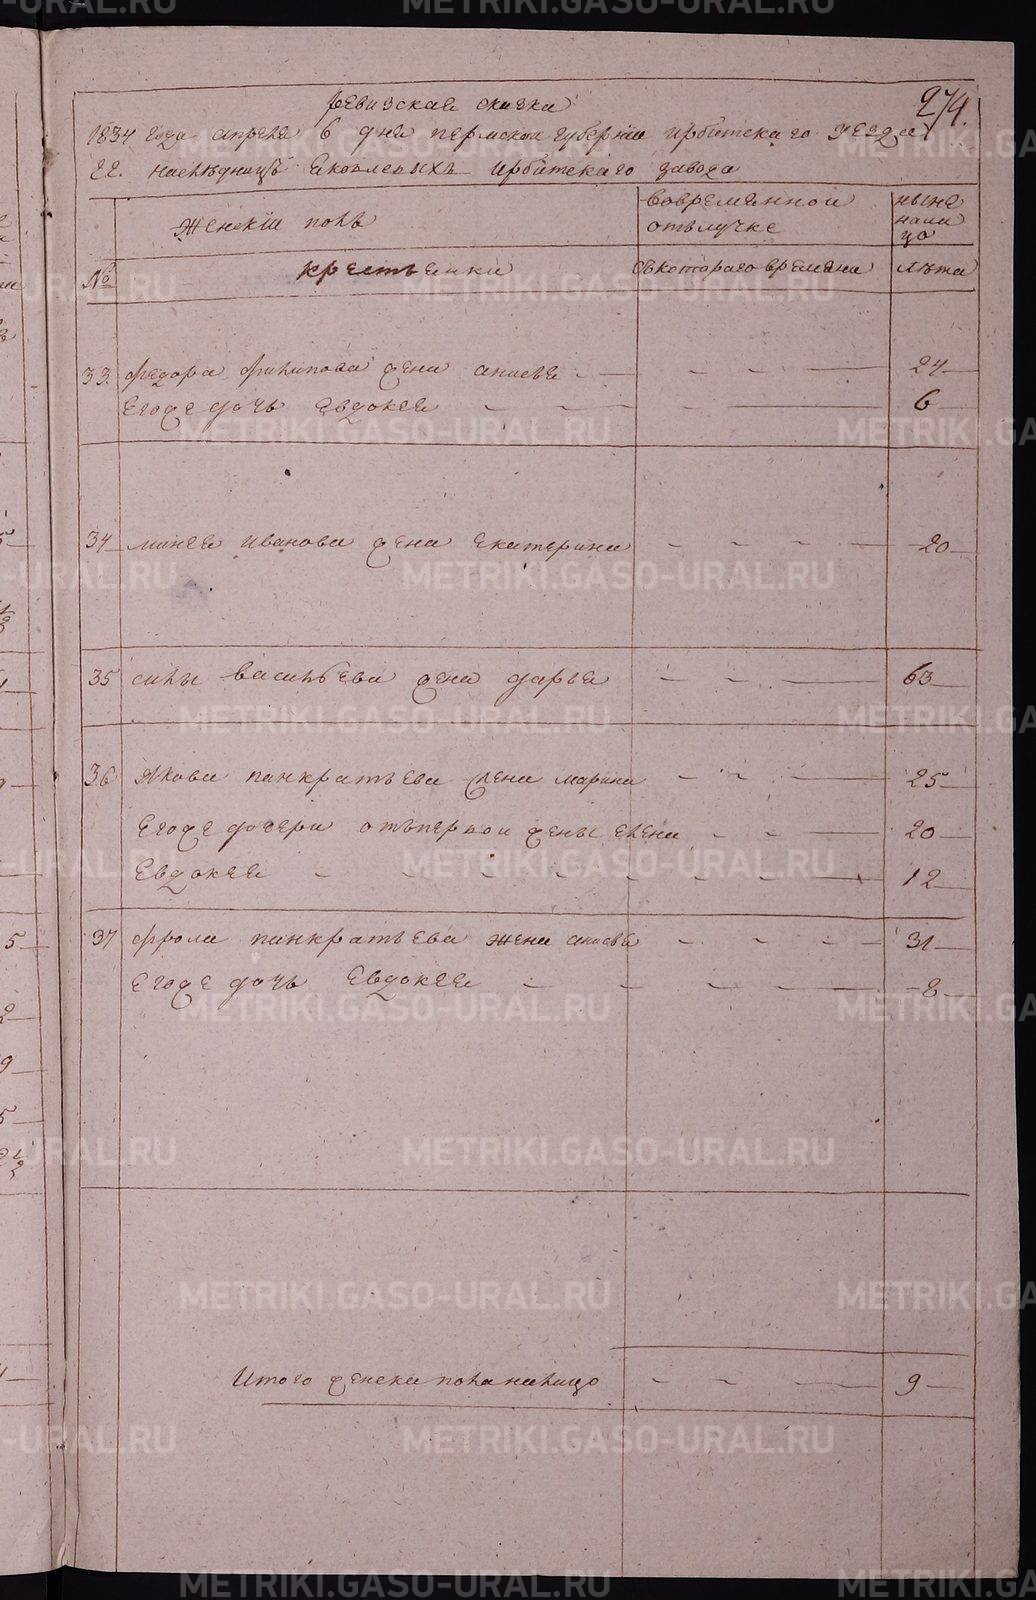 METRIKI.GASO-URAL.RU
274.
Ревизская сказка
1834 года апреля 6 дня пермской губернии ирбитскаго уезда
22. наследницъ Яковлевыхъ ирбитскаго завода
Женский полъ
вовременной отълучке
ныне налицо
№
крестьянки
съкотораго времяни
лѣта
33. федора филипова жена анисья 24
Егоже дочь евдокея 6
34 минея иванова жена екатерина 20
35 силы васильева жена дарья 63
36 Якова панкратьева жена марина 25
Егоже дочери отъпервой жены елена 20
Евдокея 12
37 фрола панкратьева жена анисья 31
Егоже дочь Евдокея 8
Итого женска пола налицо 9